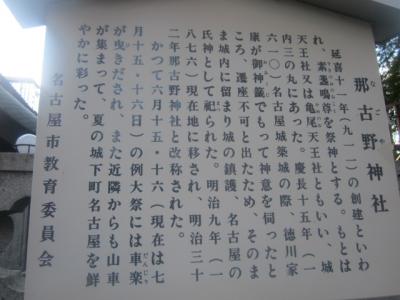 那古野神社
なごや
延喜十一年(九一一)の創建といわ
れ、素盞嗚尊を祭神とする。もとは
天王社又は亀尾天王社ともいい、城
内三の丸にあった。慶長十五年(一
六一〇)名古屋城築城の際、徳川家
康が御神籤でもって神意を伺ったと
ころ、遷座不可と出たため、そのま
ま城内に留まり城の鎮護、名古屋の
氏神として祀られた。明治九年(一
八七六)現在地に移され、明治三十
二年那古野神社と改称された。
かつて六月十五・十六(現在は七
月十五・十六日)の例大祭には車楽
だんじり
が曳きだされ、また近隣からも山車
が集まって、夏の城下町名古屋を鮮
やかに彩った。
名古屋市教育委員会